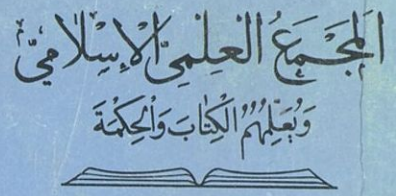 المَجْمَعُ العِلْمِيّ الإِسْلَامِيّ
وَيُعَلِّمُهُمُ الْكِتَابَ وَالْحِكْمَةَ